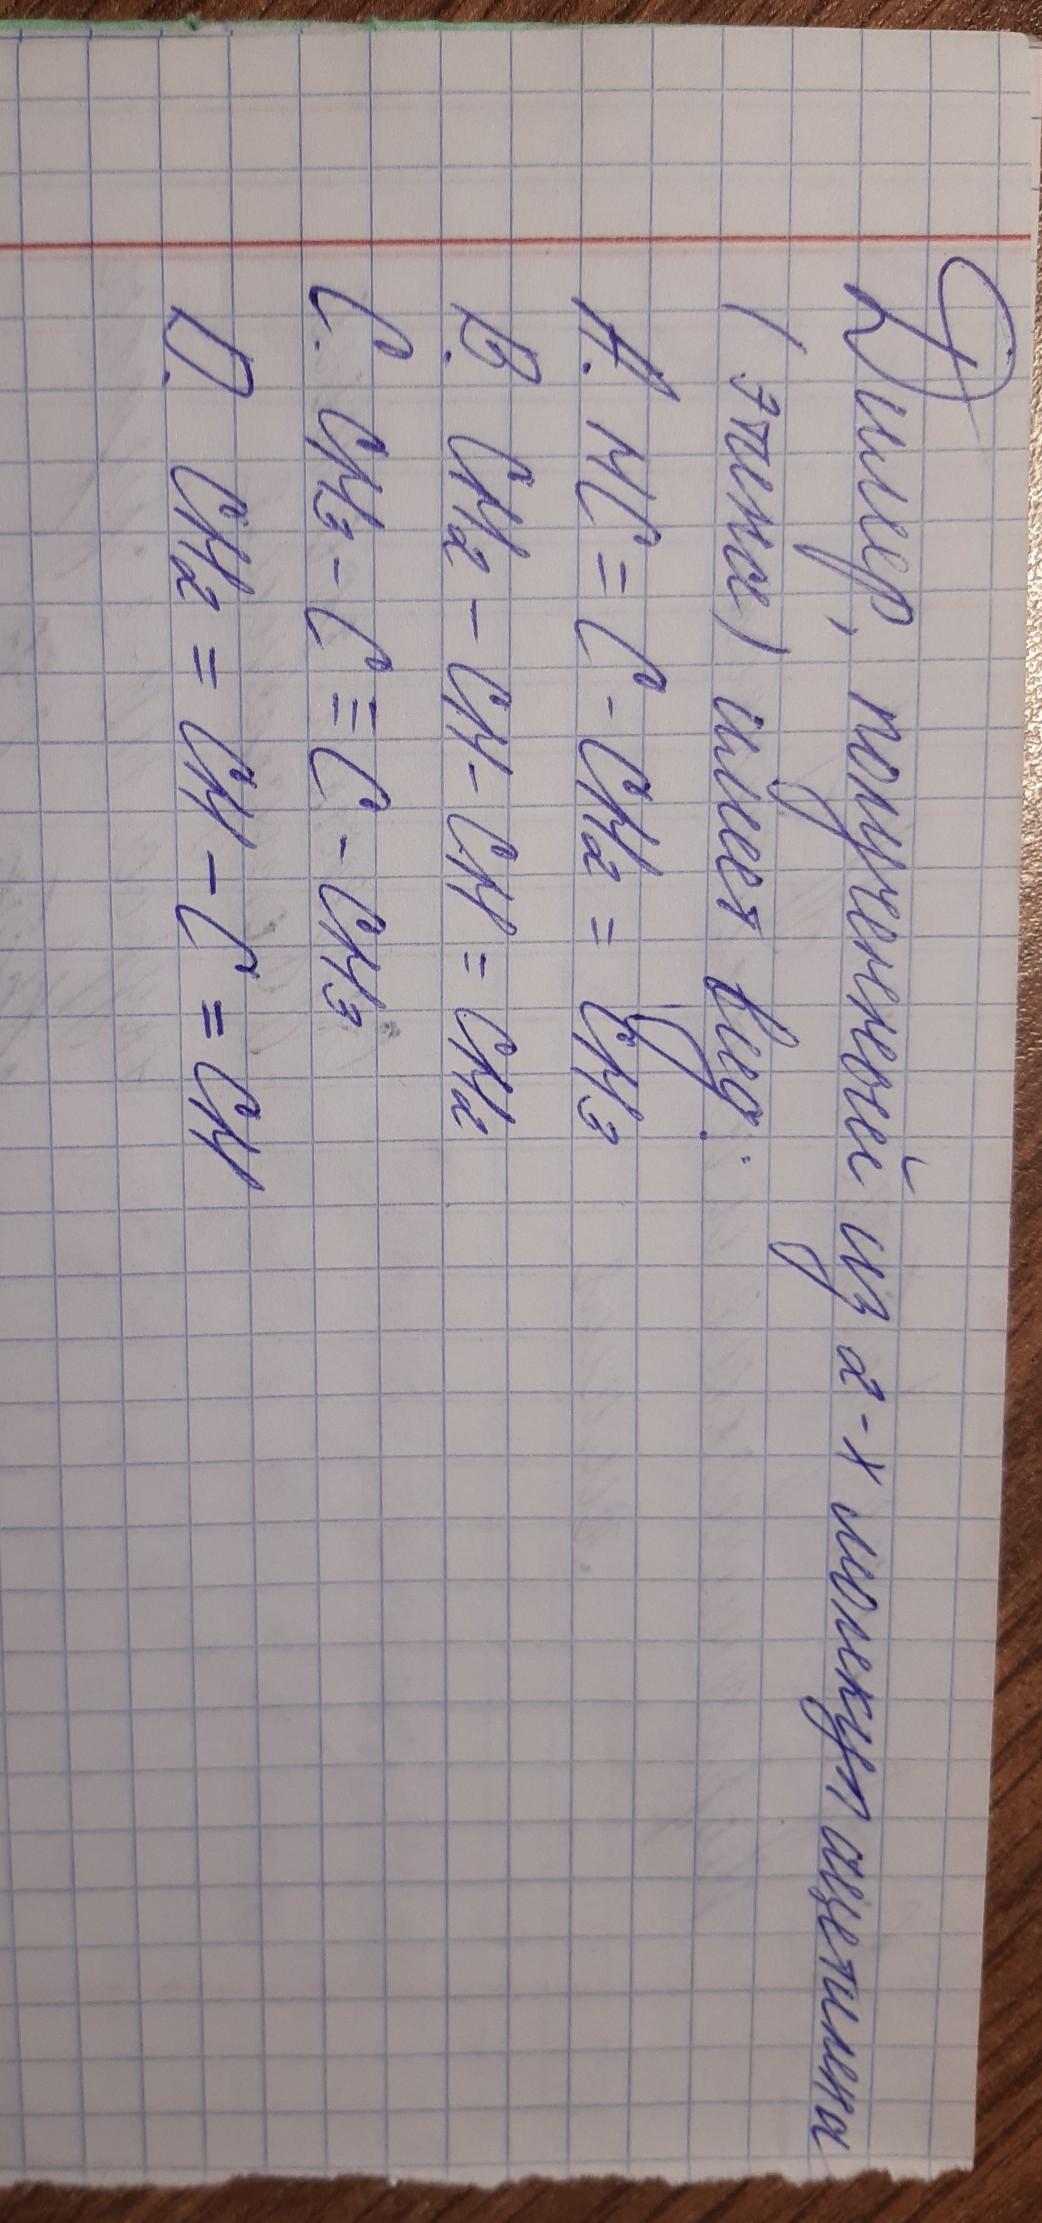 Димер, полученный из 2-х молекул ацетилена
(этина) имеет вид:
A. HC = C - CH2 = CH3
B. CH2 - CH - CH = CH2
C. CH3 - C ≡ C - CH3
D. CH2 = CH - C = CH